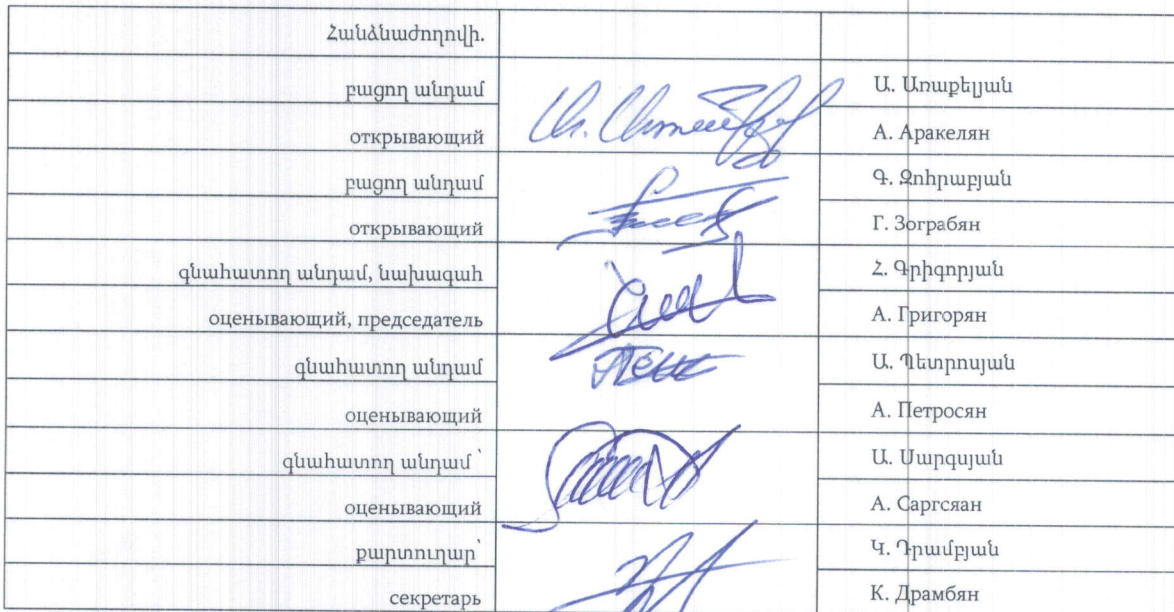 Հանձնաժողովի.
բացող անդամ
Ա. Առաքելյան
открывающий
А. Аракелян
բացող անդամ
Գ. Զոհրաբյան
открывающий
Г. Зограбян
գնահատող անդամ, նախագահ
Հ. Գրիգորյան
оценывающий, председатель
А. Григорян
գնահատող անդամ
Ա. Պետրոսյան
оценывающий
А. Петросян
գնահատող անդամ ՝
Ա. Սարգսյան
оценывающий
А. Саргсяан
քարտուղար՝
Կ. Դրամբյան
секретарь
К. Драмбян